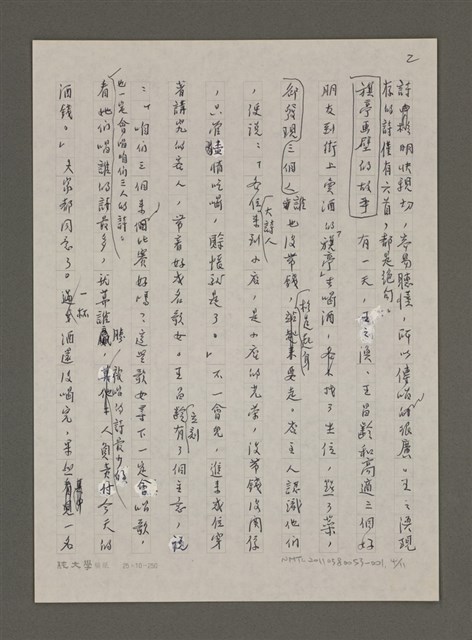 2
詩典雅明快親切,容易聽懂,所以傳唱的很廣。王之渙現
存的詩僅有六首,都是絕句。
旗亭畫壁的故事 有一天,王之渙、王昌齡和高適三個好
朋友到街上賣酒的「旗亭」去喝酒,各找了坐位,點了菜,
卻發現三個人誰也沒帶錢,於是起身要走。店主人認識他們
,便說:「各位大詩人來到小店,是小店的光榮,沒帶錢沒關係
,只管隨情吃喝,賒帳就是了。」不一會兒,進來或位穿
著講究的客人,帶著好或名歌女。王昌齡立刻有了個主意,說
:「咱們三個來個比賽好嗎?這些歌女等下一定會唱歌,
也一定會唱咱們三人的詩。
看她們唱誰的詩最多,就算誰勝,被唱的詩最少的人負責付今天的
酒錢。」大家都同意了。一杯酒還沒喝完,果然其中一名
師大學 25×10=250
NMTL20110380053-001